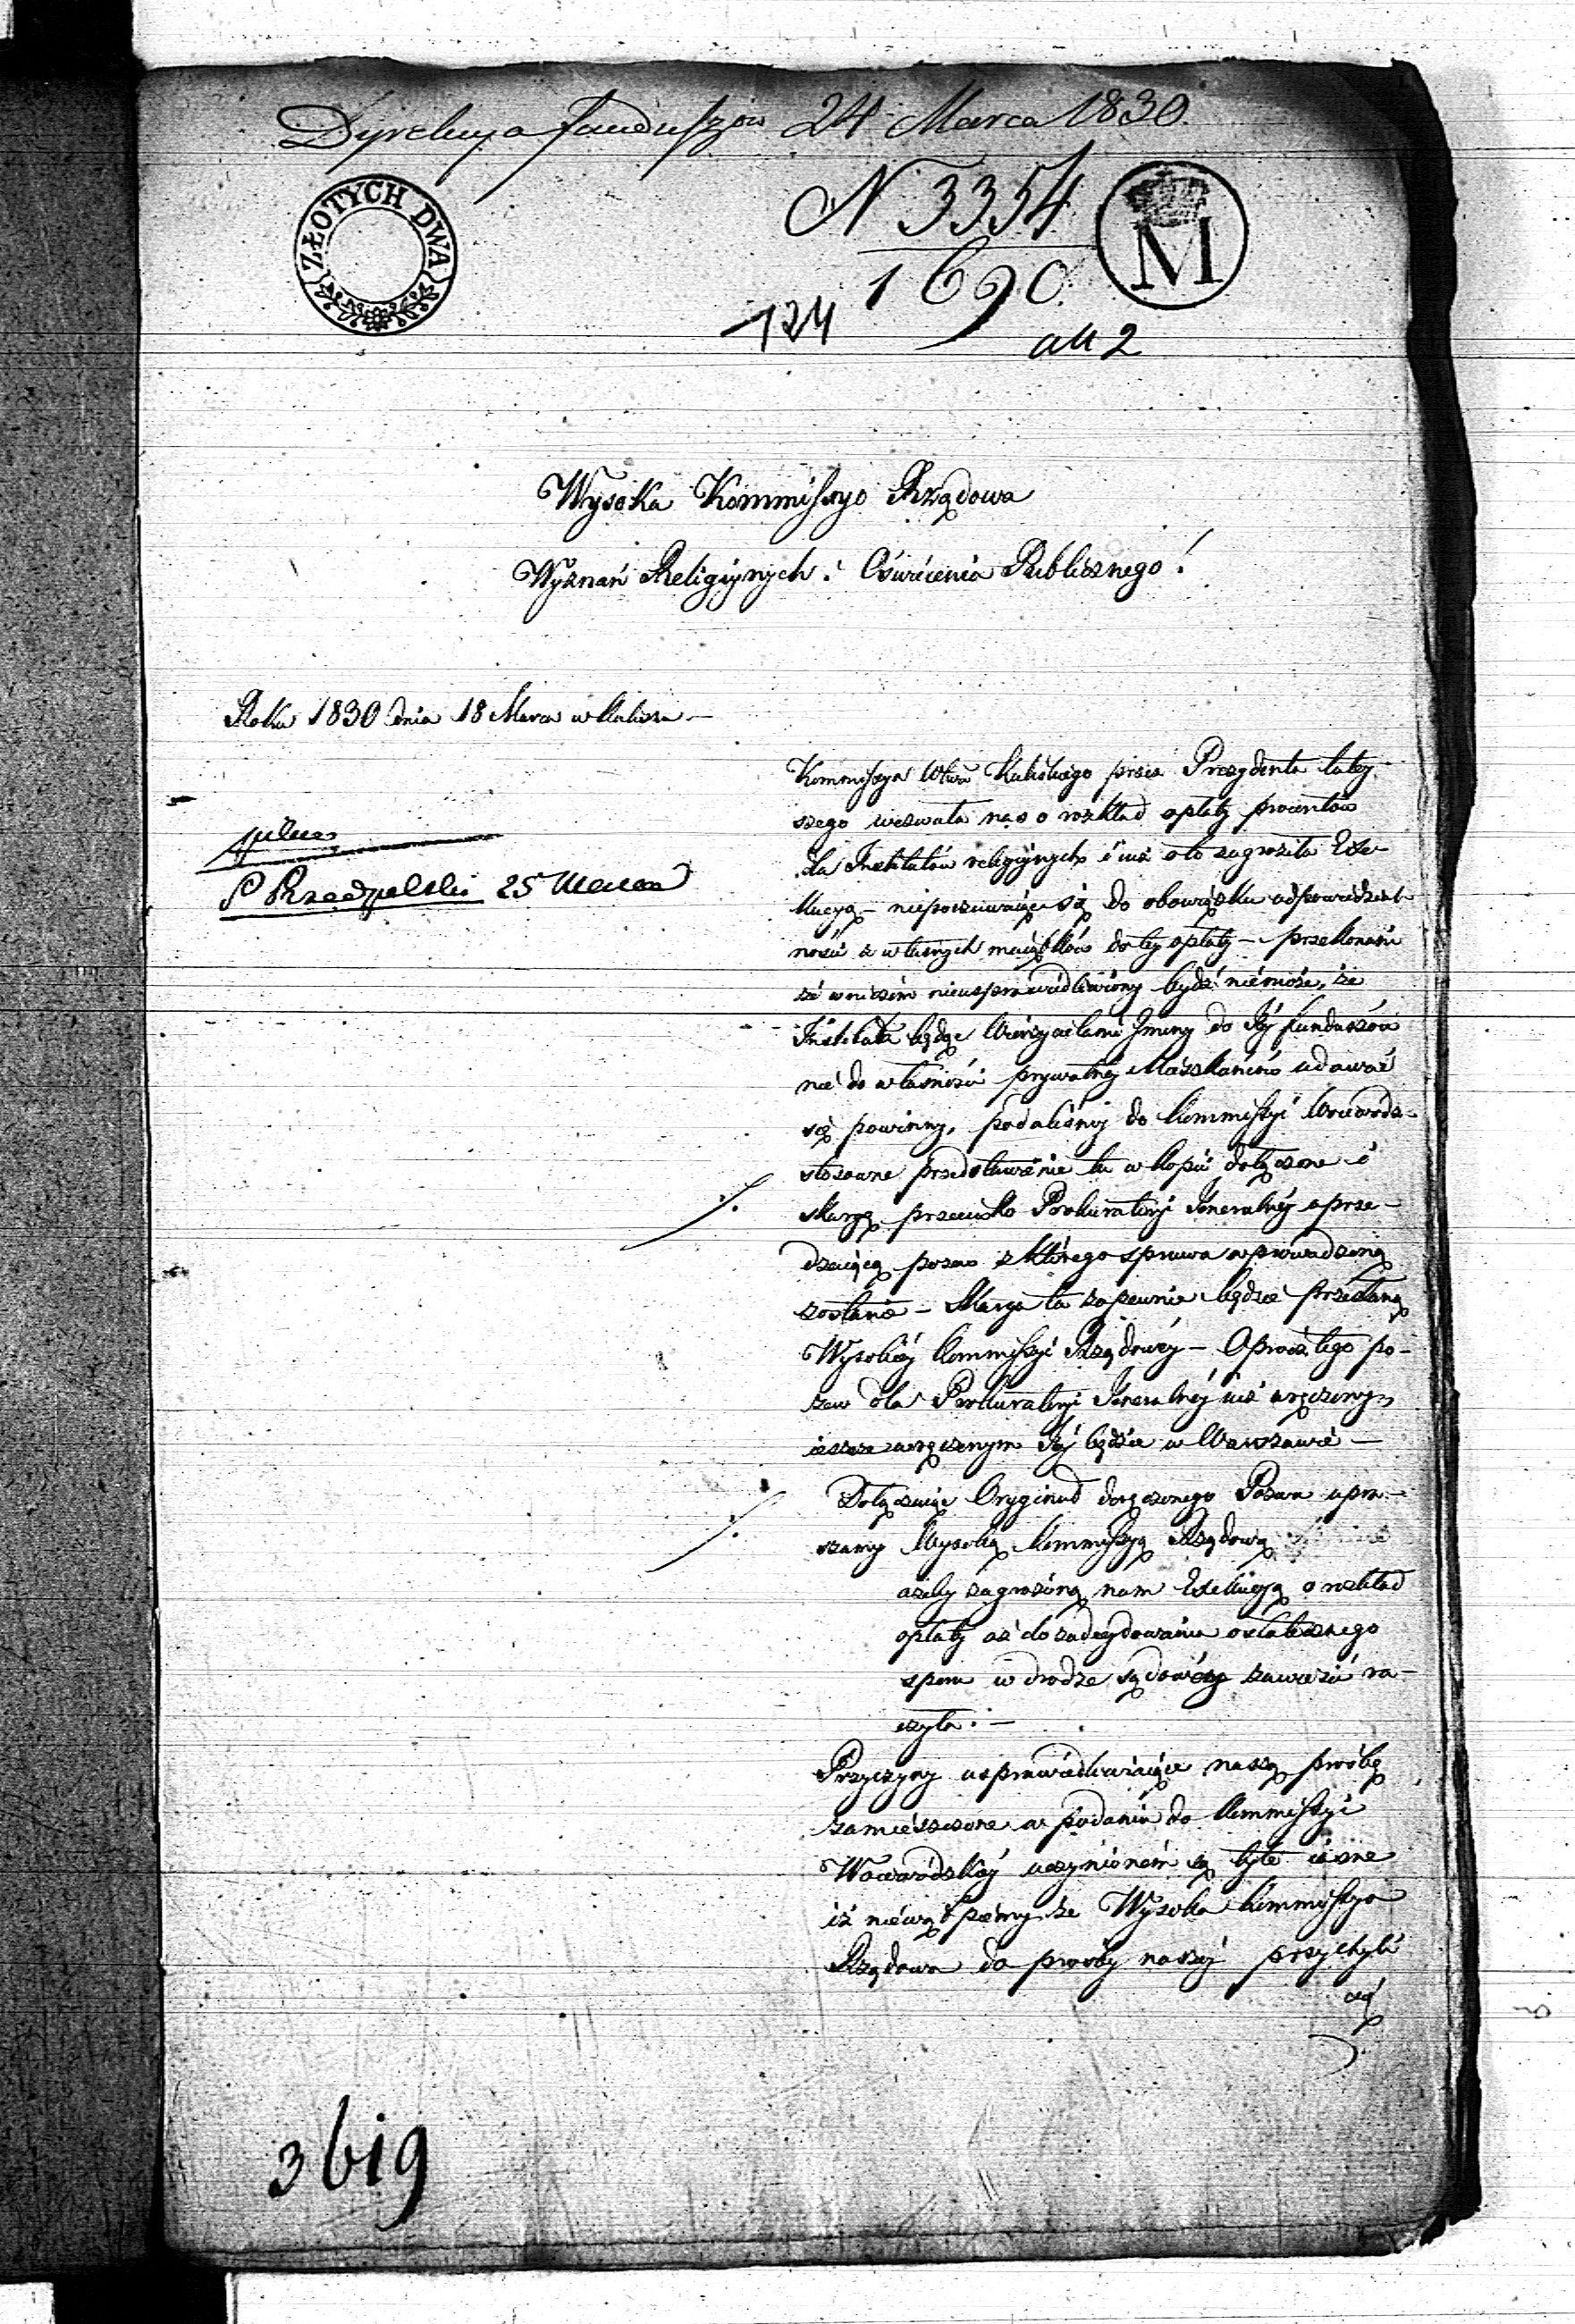 Dyrekcya funduszów 24 Marca 1830.
ZŁOTYCH DWA
N 3354
1690.
M
124
all 2
Wysoka Kommissyo Rządowa
Wyznań Religiynych i Oświecenia Publicznego!
Roku 1830 dnia 18 Marca w Kaliszu –
25 Marca
Kommissya Wtwa Kaliskiego przez Prezydenta tutey
szego wezwała nas o rozkład opłaty procentów
dla Instytutów religiynych i iuż o to zagroziła Exe-
kucyą – niepoczuwaiąc się do obowiązku odpowiedzial-
ności z własnych maiątków do tey opłaty – przekonani
że w niczém nieusprawiedliwiony bydź niemoże, że
Instytuta będąc Wierzycielami Gminy do Jéj funduszów
nie do własności prywatnéj Mieszkańców udawać
się powinny, podaliśmy do Kommissyi Wojewódz-
stosowne przedstawienie tu w kopii dołączone i
skargę przeciwko Prokuratoryi Jeneralnéj uprze-
dzaiącą pozew z którego sprawa wprowadzoną
zostanie – Skarga ta zapewnie będzie przesłaną
Wysokiéj Kommissyi Rządowéj – Oprócz tego po-
zew dla Prokuratoryi Jeneralnéj iuż wręczony,
ieszcze wręczonym Jéj będzie w Warszawie –
Dołączaiąc Oryginał doręczonego Pozwu upra-
szamy Wysoką Kommissyą Rządową
ażeby zagrożoną nam Exekucyą o rozkład
opłaty aż do zadecydowania ostatecznego
sporu w drodze sądowéy zawiesić ra-
czyła. –
Przyczyny usprawiedliwiaiące naszą prośbę
zamieszczone w podaniu do Kommissyi
Woiewódzkiéj uczynioném są tyle iasne
iż niewątpiemy że Wysoka Kommissya
Rządowa do prośby naszéj przychyli
się
3619